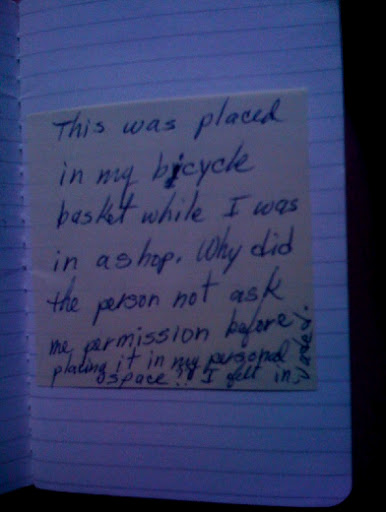 This was placed
in my bicycle
basket while I was
in a shop. Why did
the person not ask
me permission before
placing it in my personal
space?! I felt in-
vaded.